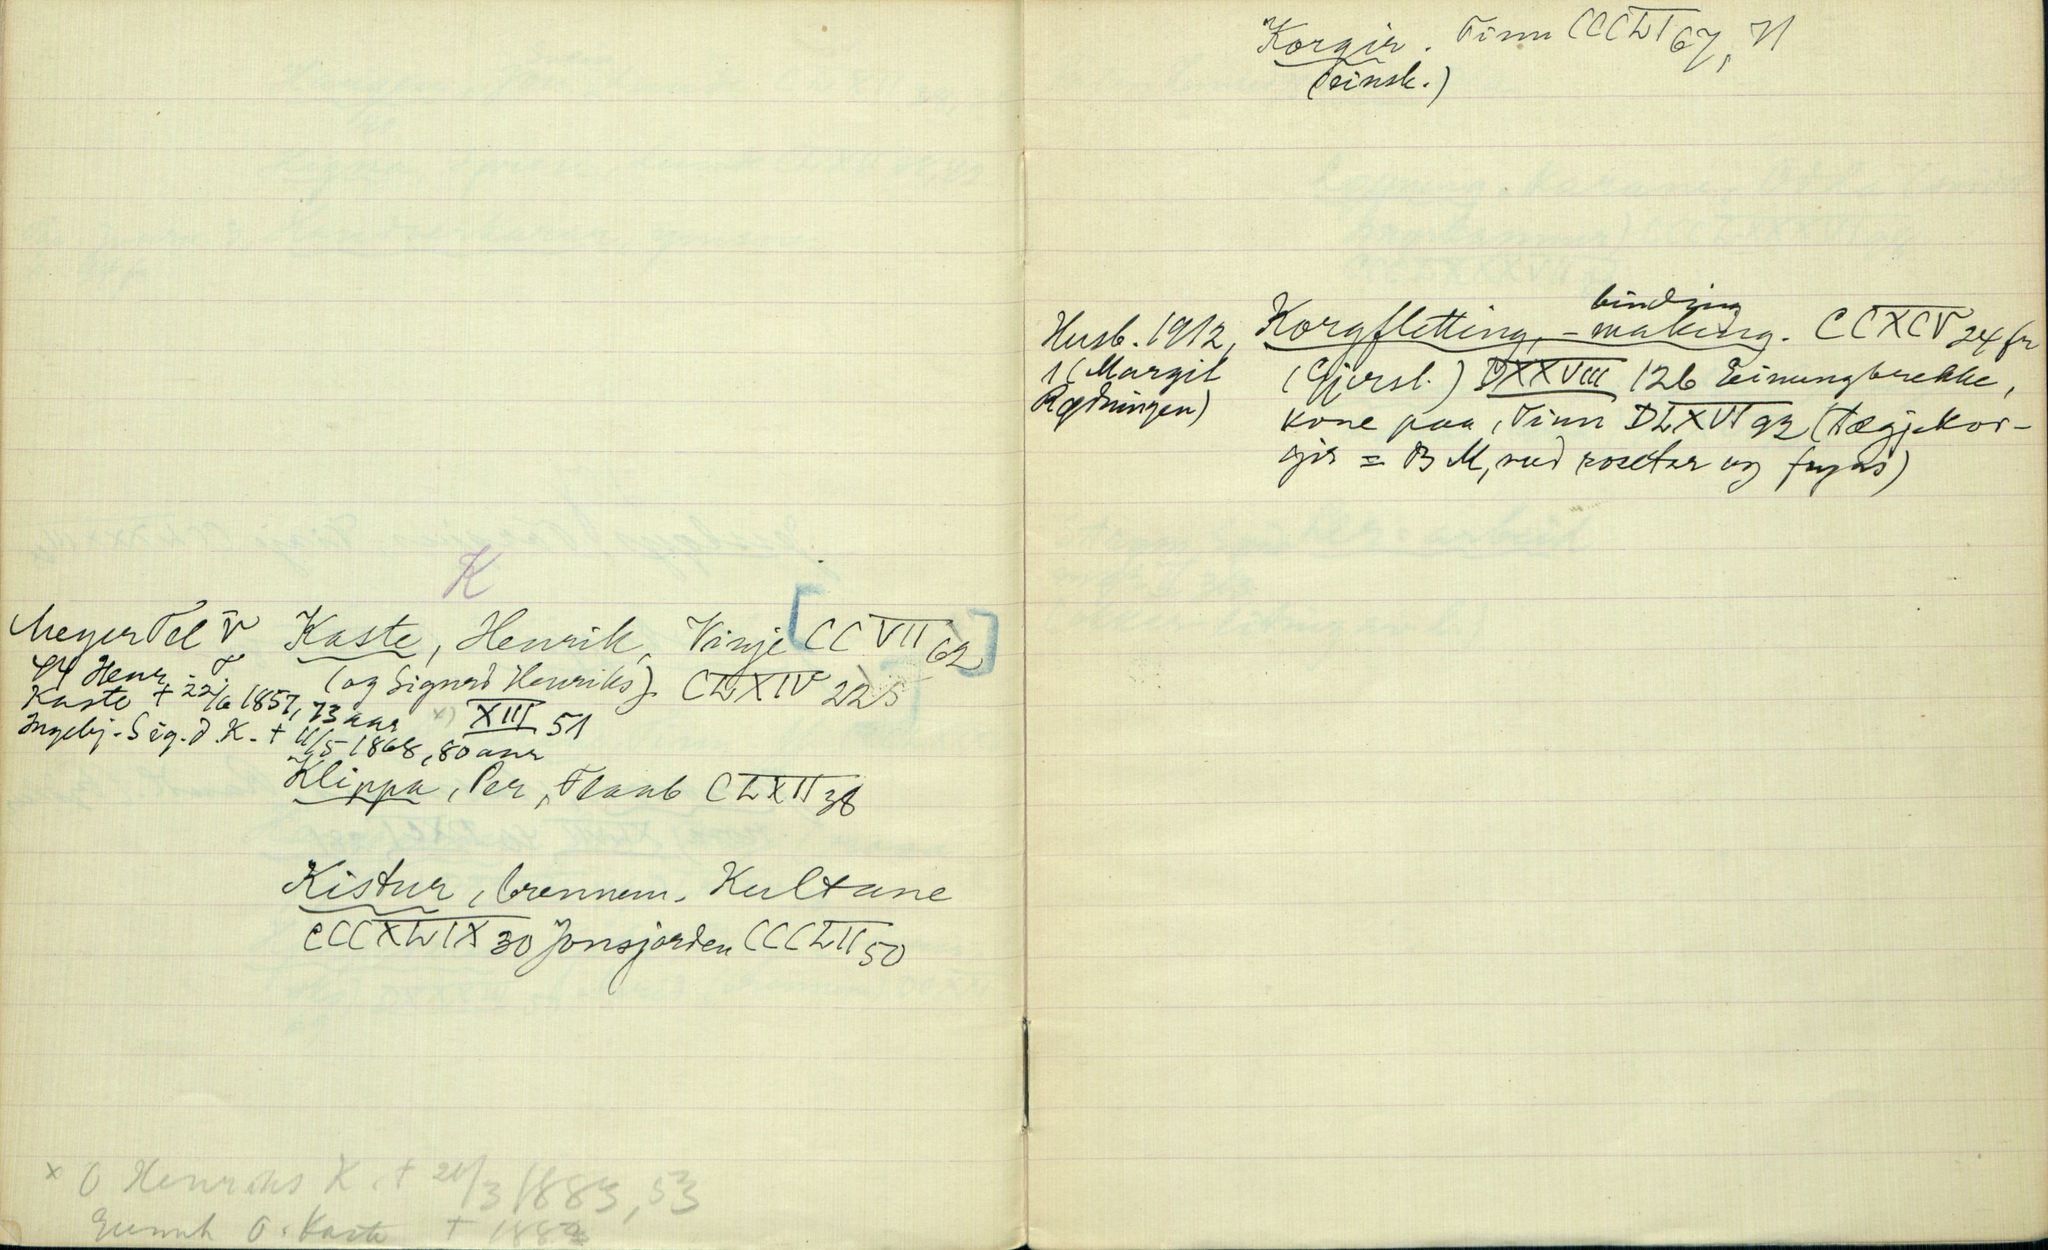 K
Meyer Tel V
44 Henr. T.
Kaste + 22/6 1857, 73 aar
Ingebj. Sig. d. K. + 11/5 1868, 80 aar
Kaste, Henrik, Vinje [CCVII 62]
(og Sigurd Henriks). CLXIV 225
(x) XIII 51
Klippa, Per, Flaab CLXII 38
Kistur, brennem. Kultane
CCCXLIX 30 Jonsjorden CCCLII 50
x O Henriks K. + 21/3 1883, 53
Gunnh O. Kaste + 188
Korgir. Tinn CCCLI 67, 71
(Teinsk.)
Husb. 1912,
1 (Margit
Rødningen)
binding
Korgfletting, - making. CCXCV 24 fr
(Gjersl.) DXXVIII 126 Einungbrekke,
kone paa, Tinn DLXVI 92 (Tægjekor-
gir = B M, med rosetar og )